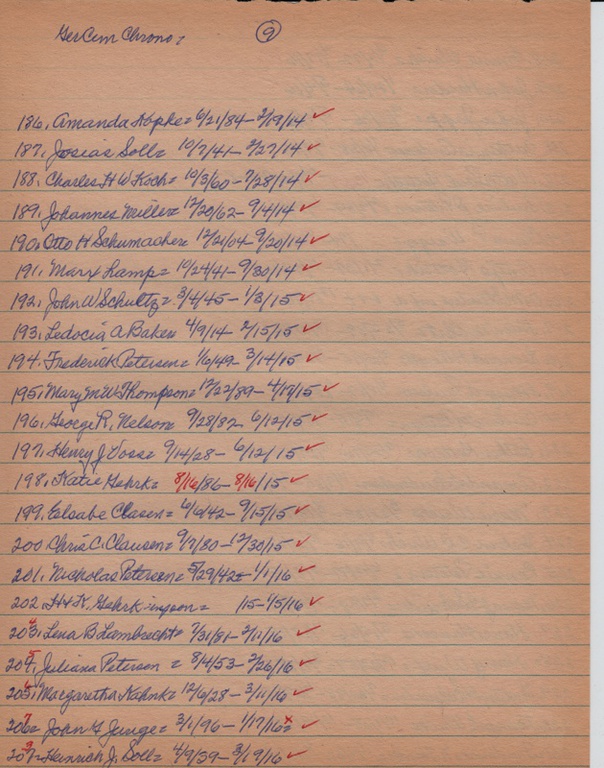 GerCem Chrono: 9
186, Amanda Hopke = 6/21/84 - 2/19/14 ✓
187, Josias Soll = 10/7/41 - 2/27/14 ✓
188, Charles H W Koch = 10/3/60 - 7/28/14 ✓
189, Johannes Miller = 12/20/62 - 9/4/14 ✓
190, Otto H Schumacher = 12/21/04 - 9/20/14 ✓
191, Marx Lamp = 10/24/41 - 9/30/14 ✓
192, John W Schultz = 3/4/45 - 1/8/15 ✓
193, Ledocia A Baker 4/9/14 - 2/15/15 ✓
194, Frederick Petersen = 1/6/49 - 3/14/15 ✓
195, Mary M W Thompson = 12/22/89 - 4/19/15 ✓
196, George R, Nelson = 9/28/82 6/12/15 ✓
197, Henry J Voss = 9/14/28 - 6/12/15 ✓
198, Katie Gehrk = 8/16/86 - 8/16/15 ✓
199, Eelsabe Clasen = 6/6/42 - 9/15/15 ✓
200 Chris C. Clausen = 9/7/80 - 12/30/15 ✓
201, Nicholas Petersen = 5/29/42 = 1/1/16 ✓
202, H+K, Gehrk = /15 - 1/5/16 ✓
203, 4 Lena B Lambrecht = 7/31/81 - 2/11/16 ✓
204, 5 Juliana Peterson = 8/4/53 - 2/26/16 ✓
205, 6 Margaretha Kahnk = 12/6/28 - 3/11/16 ✓
206 = 7 John G Junge = 3/1/96 - 1/17/16 = x ✓
207 = Heinrich J. Soll = 4/9/39 - 3/19/16 ✓